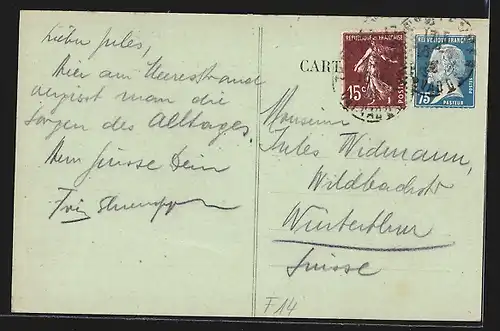 Lieber Jules,
Hier am Meeresstrand
vergisst man die
Sorgen des Alltages.
Grüsse Dein
Fritz
CART
REPUBLIQUE FRANÇAISE
15c
POSTES
REPUBLIQUE FRANÇAISE
75c
PASTEUR
POSTES
Monsieur
Jules Widmann,
Wildbachstr
Winterthur
Suisse
F 14